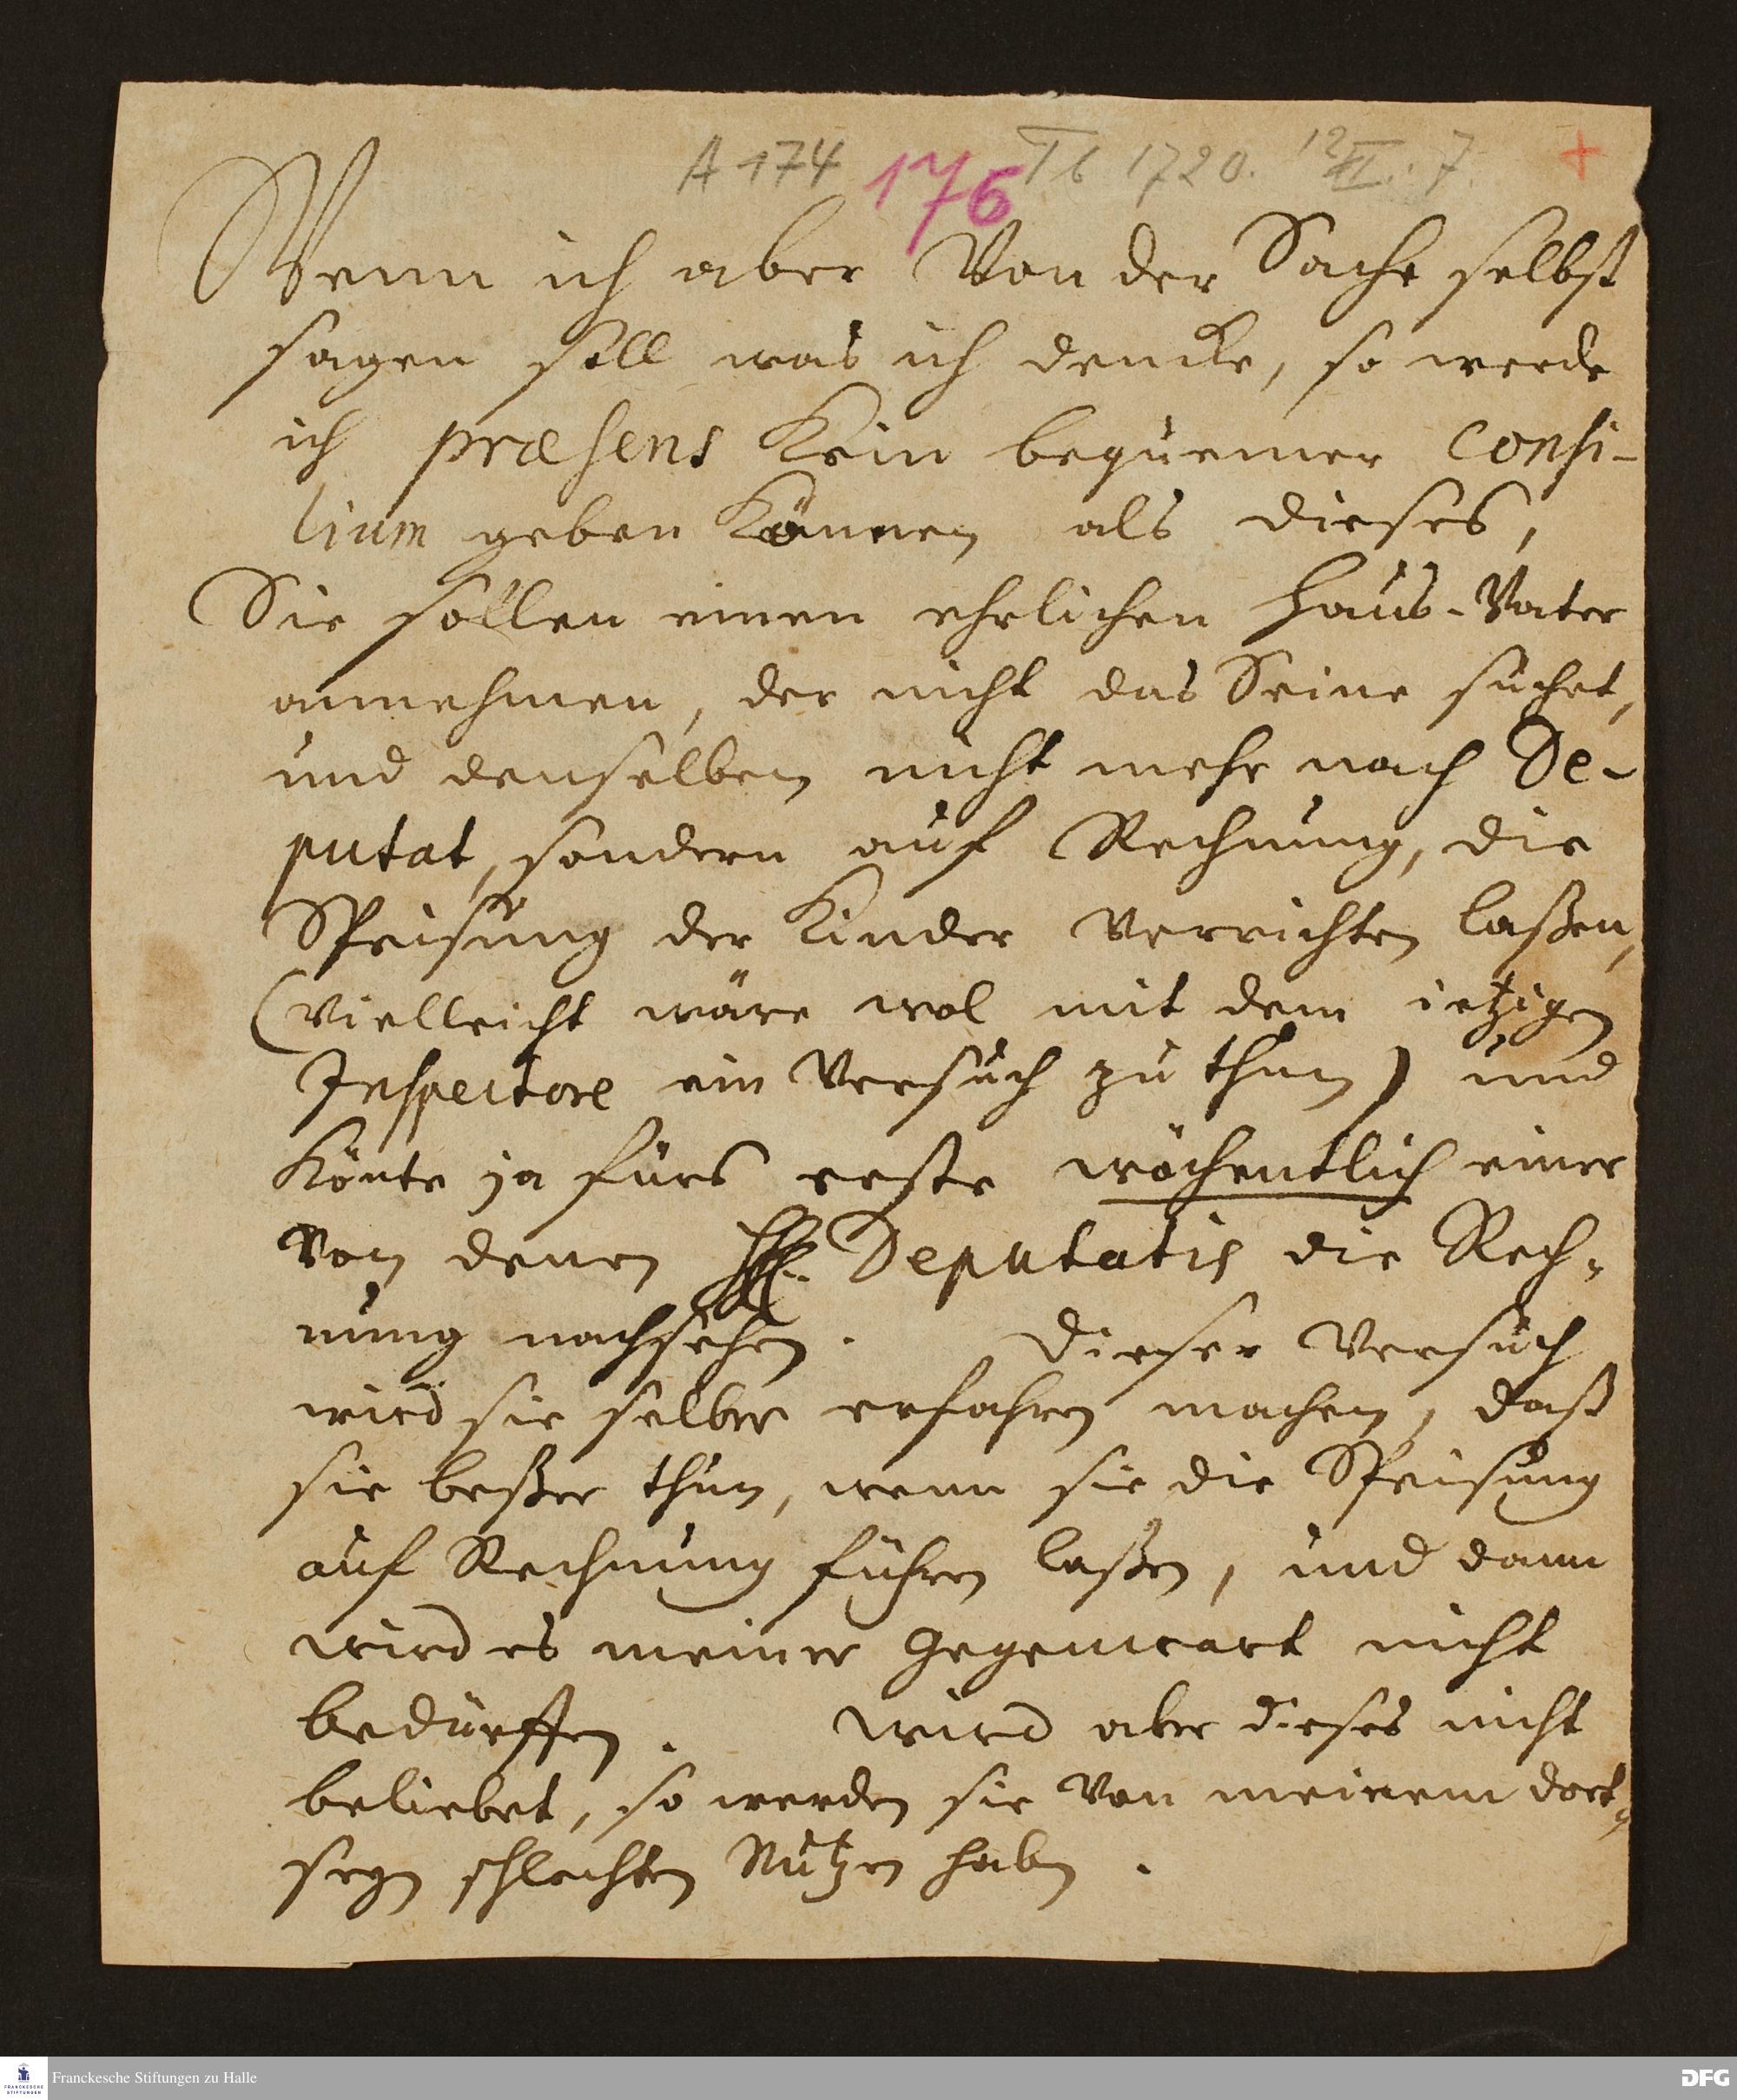 A 174 176 Tb 1720. 12 II. 7. +
Wenn ich aber Von der Sache selbst
sagen soll was ich dencke, so werde
ich præsens Kein bequemer Consi-
lium geben Können als dieses,
Sie sollen einen ehrlichen Haus-Vater
annehmen, der nicht das Seine suchet,
und denselben nicht mehr nach De-
putat, sondern auf Rechnung, die
Speisung der Kinder Verrichten laßen,
(Vielleicht wäre wol mit dem ietzigen
Inspectore ein Versuch zu thun) und
Könte ja fürs erste wöchentlich einer
Von denen HH. Deputatis die Rech-
nung nachsehen. Dieser Versuch
wird sie selber erfahren machen, daß
sie beßer thun, wenn sie die Speisung
auf Rechnung führen laßen, und dann
wird es meiner Gegenwart nicht
bedürffen. Wird aber dieses nicht
beliebet, so werden sie Von meinem dort-
seyn schlechten Nutzen haben.
FRANCKESCHE
STIFTUNGEN
Franckesche Stiftungen zu Halle
DFG